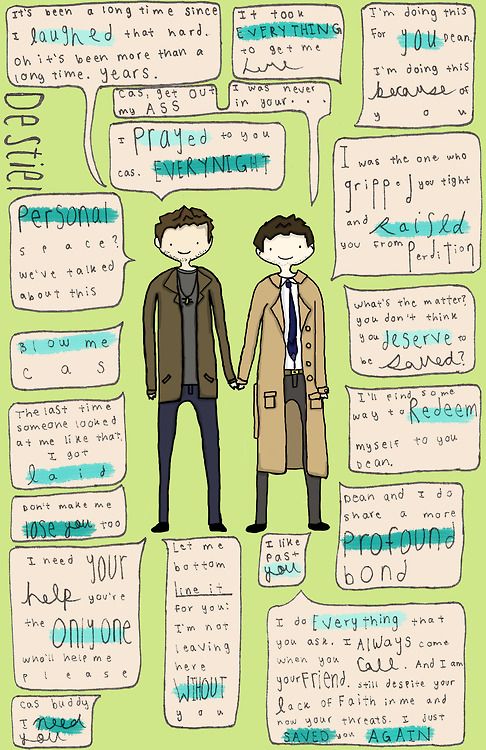 It's been a long time since
I laughed that hard.
Oh it's been more than a
long time. years.
It took
EVERYTHING
to get me
here
I'm doing this
for you Dean.
I'm doing this
because of
you
Cas, get out
my ASS
I was never
in your...
Destiel
I Prayed to you
cas. EVERYNIGHT
I was the one who
gripped you tight
and Raised
you from Perdition
Personal
space?
we've talked
about this
what's the matter?
you don't think
you deserve to
be saved?
Blow me
cas
I'll find some
way to Redeem
myself to you
Dean.
The last time
someone looked
at me like that,
I got
laid
Dean and I do
share a more
Profound
bond
Don't make me
lose you too
I like
past
you
Let me
bottom
line it
for you:
I'm not
leaving
here
WITHOUT
you
I need YOUR
help you're
the only one
who'll help me
please
I do Everything that
you ask. I ALWAYS come
when you CALL. And I am
your FRIEND. still despite your
lack of Faith in me and
now your threats. I just
SAVED you AGAIN
cas buddy
I need
you